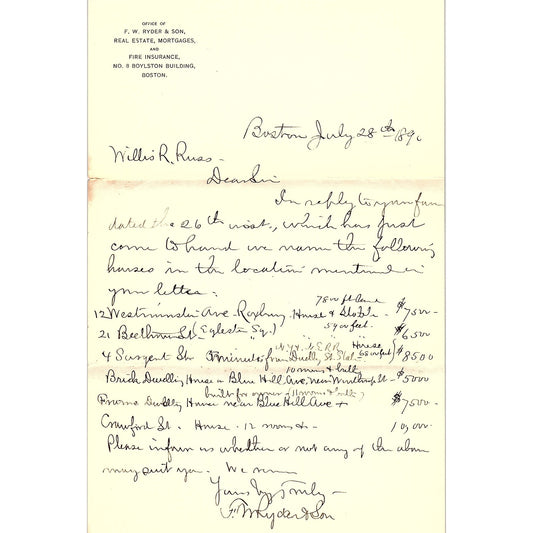 OFFICE OF
F. W. RYDER & SON,
REAL ESTATE, MORTGAGES,
AND
FIRE INSURANCE,
NO. 8 BOYLSTON BUILDING,
BOSTON.
Boston July 28th 189
Willis R. Russ -
Dear Sir
In reply to your favor
dated the 26th inst., which has just
come to hand we name the following
houses in the location mentioned in
your letter.
7800 ft Land
12 Westminster Ave Roxbury House & Stable $7500-
5900 feet.
21 Beethoven St (Egleston Sq.) " " $6500
N.Y.N.H.R.R House
4 Sargent St 3 minutes from Dudley St. Stat. 6800 feet) $8500
10 rooms & bath
Brick Dwelling House on Blue Hill Ave, near Winthrop St - $5000
built for owner (11 rooms & bath)
Frame Dwelling House near Blue Hill Ave + $7500-
Crawford St. House 12 rooms - 10,000-
Please inform us whether or not any of the above
may suit you. We remain
Yours very truly -
F. W. Ryder & Son